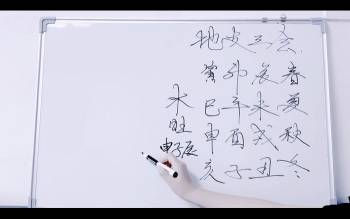 地支三会
寅卯辰春
巳午未夏
申酉戌秋
亥子丑冬
水
旺
申子辰